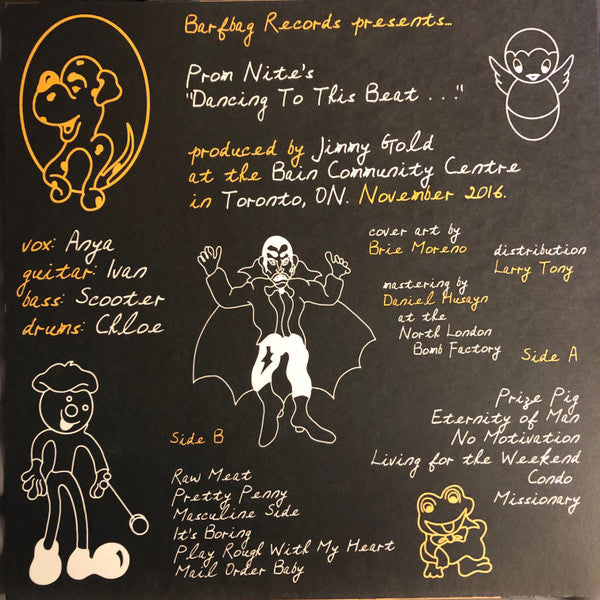 Barfbag Records presents...
Prom Nite's
"Dancing To This Beat . . ."
produced by Jimmy Gold
at the Bain Community Centre
in Toronto, ON. November 2016.
vox: Anya
guitar: Ivan
bass: Scooter
drums: Chloe
cover art by
Brie Moreno
distribution
Larry Tony
mastering by
Daniel Husayn
at the
North London
Bomb Factory
Side A
Prize Pig
Eternity of Man
No Motivation
Living for the Weekend
Condo
Missionary
Side B
Raw Meat
Pretty Penny
Masculine Side
It's Boring
Play Rough With My Heart
Mail Order Baby